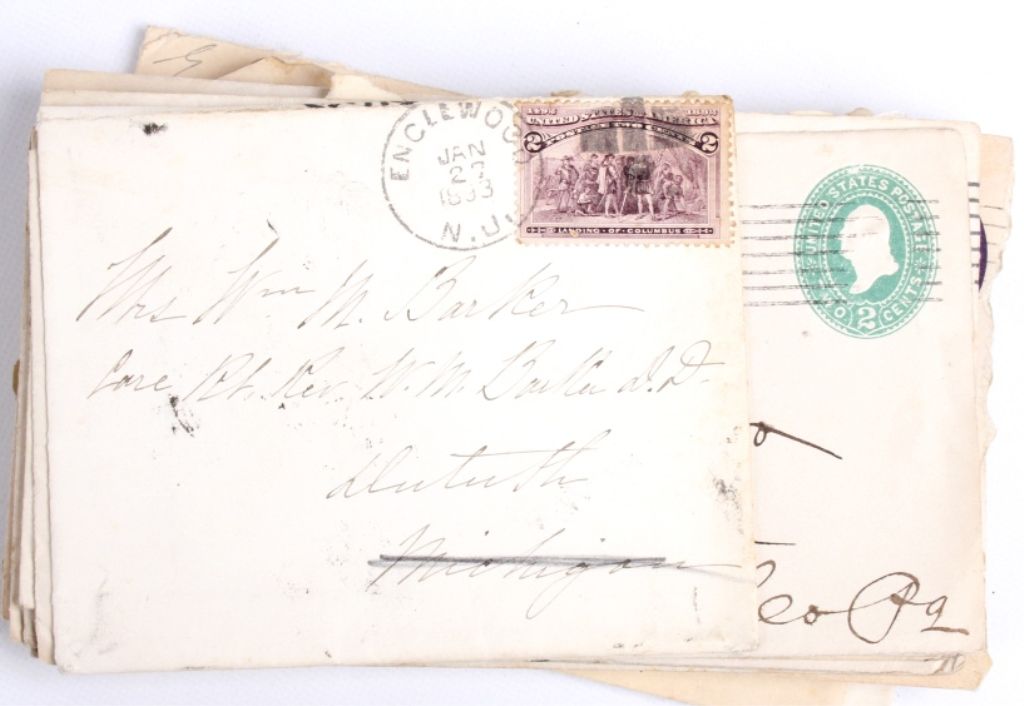 ENGLEWOOD
JAN
27
1893
N.J.
1492 1892
UNITED STATES OF AMERICA
POSTAGE TWO CENTS
2 2
LANDING · OF · COLUMBUS
Mrs Wm M. Barker
Care Rt. Rev. W. M. Barker D.D.
Duluth
Michigan
UNITED STATES POSTAGE
2 CENTS
Co Pa